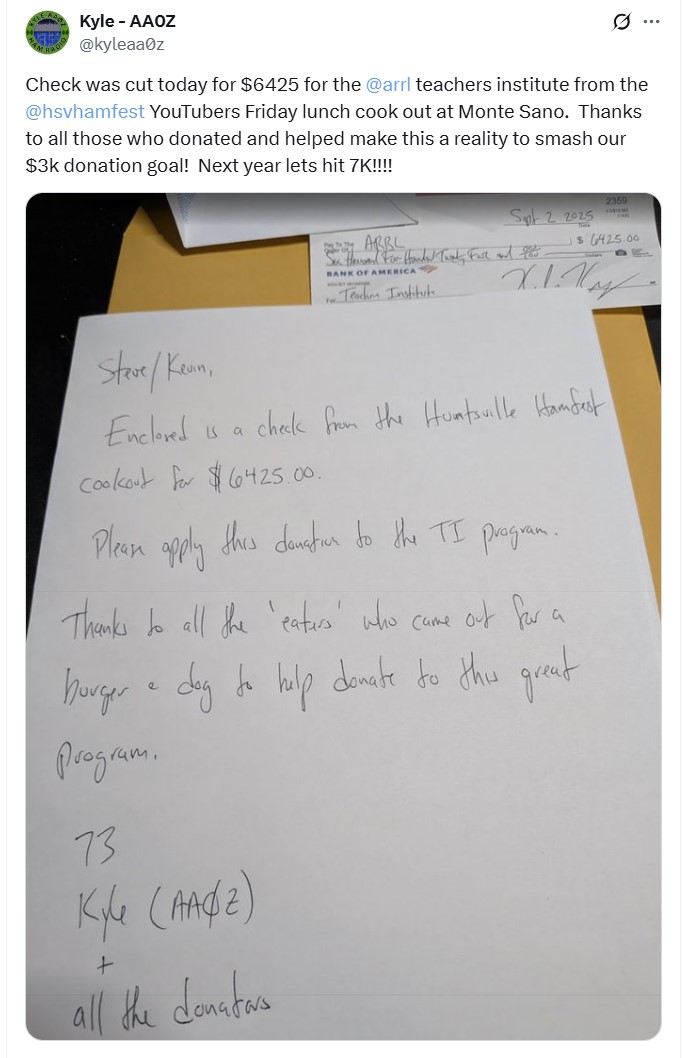 Kyle - AA0Z
@kyleaa0z
Check was cut today for $6425 for the @arrl teachers institute from the
@hsvhamfest YouTubers Friday lunch cook out at Monte Sano. Thanks
to all those who donated and helped make this a reality to smash our
$3k donation goal! Next year lets hit 7K!!!!
2359
Sept 2 2025
Date
Pay To The
Order Of
ARRL
$ 6425.00
Six Thousand Four Hundred Twenty Five and
BANK OF AMERICA
For Teachers Institute
Steve/Kevin,
Enclosed is a check from the Huntsville Hamfest
cookout for $6425.00.
Please apply this donation to the TI program.
Thanks to all the 'eaters' who came out for a
burger & dog to help donate to this great
program.
73
Kyle (AAØZ)
+
all the donators